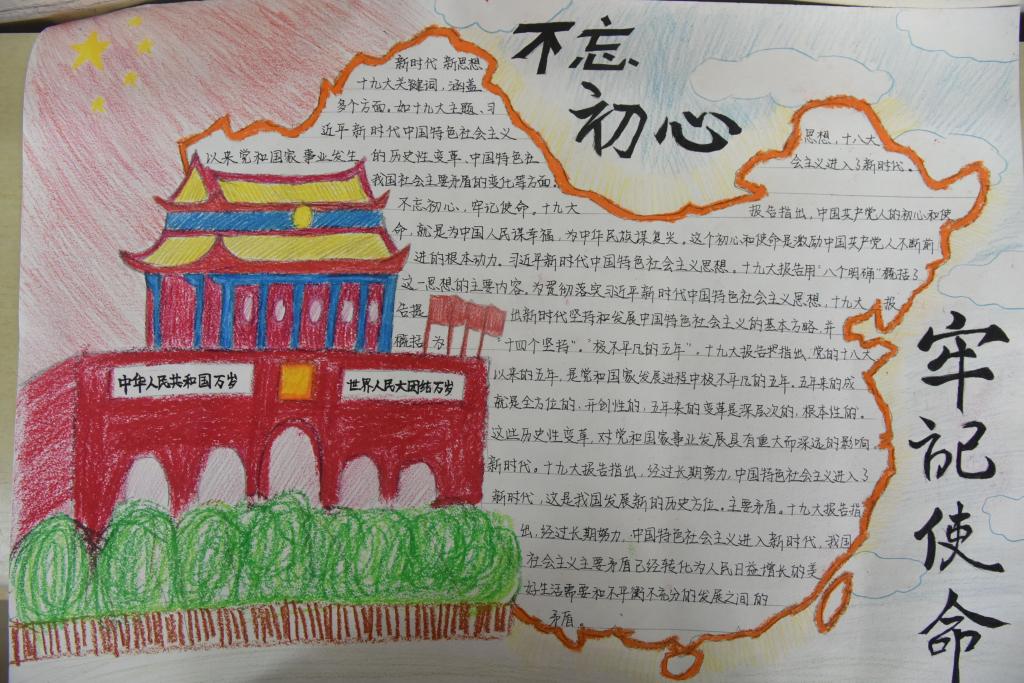 不忘
初心
牢记使命
新时代 新思想
十九大关键词，涵盖
多个方面。如十九大主题、习
近平新时代中国特色社会主义
思想，十八大
以来党和国家事业发生
的历史性变革、中国特色社
会主义进入了新时代。
我国社会主要矛盾的变化等方面。
不忘初心，牢记使命。十九大
报告指出，中国共产党人的初心和使
命，就是为中国人民谋幸福，为中华民族谋复兴。这个初心和使命是激励中国共产党人不断前
进的根本动力。习近平新时代中国特色社会主义思想。十九大报告用"八个明确"概括了
这一思想的主要内容。为贯彻落实习近平新时代中国特色社会主义思想，十九大报
告提
出新时代坚持和发展中国特色社会主义的基本方略，并
概括为
"十四个坚持"。"极不平凡的五年"。十九大报告指出，党的十八大
以来的五年，是党和国家发展进程中极不平凡的五年。五年来的成
就是全方位的、开创性的，五年来的变革是深层次的，根本性的。
这些历史性变革，对党和国家事业发展具有重大而深远的影响
新时代。十九大报告指出，经过长期努力，中国特色社会主义进入了
新时代，这是我国发展新的历史方位。主要矛盾。十九大报告指
出，经过长期努力，中国特色社会主义进入新时代，我国
社会主义主要矛盾已经转化为人民日益增长的美
好生活需要和不平衡不充分的发展之间的
矛盾。
中华人民共和国万岁
世界人民大团结万岁